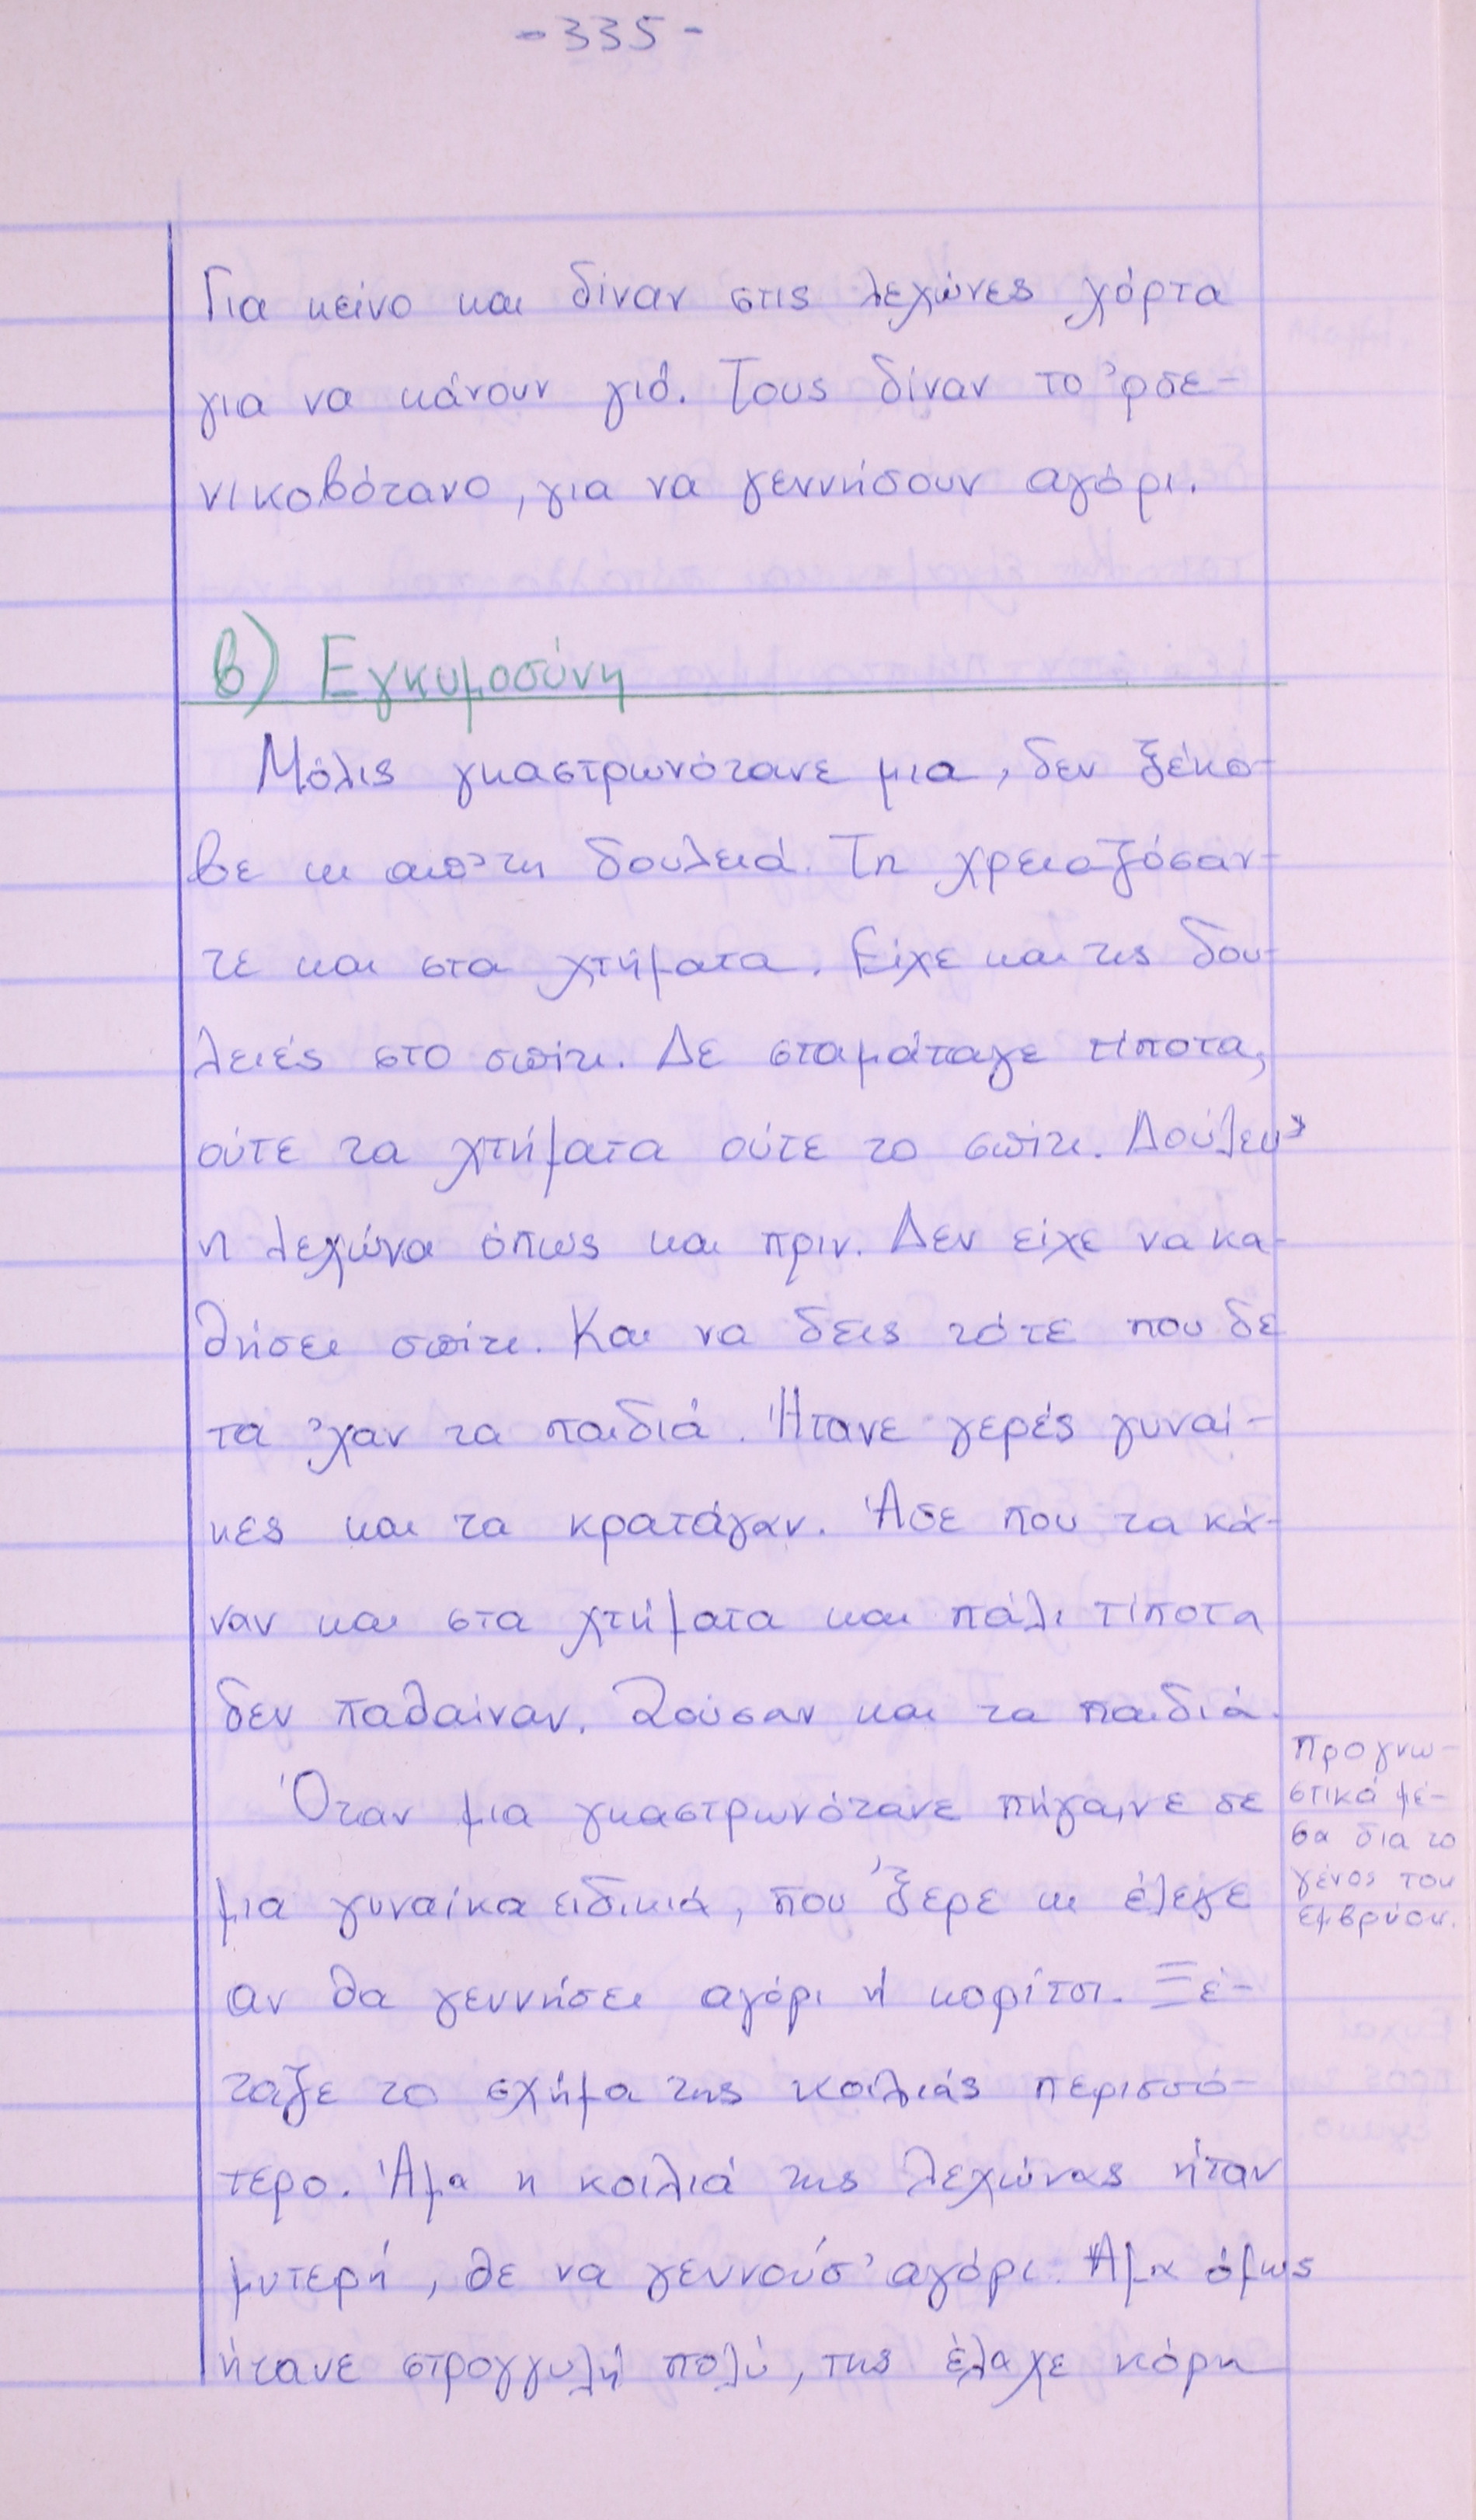 -335-
Για κείνο και δίναν στις λεχώνες χόρτα
για να κάνουν γιό. Τους δίναν το 'ρσε-
νικοβότανο, για να γεννήσουν αγόρι.
β) Εγκυμοσύνη
Μόλις γκαστρωνότανε μια, δεν ξέκο-
βε κι απ' τη δουλειά. Τη χρειαζόσαν-
τε και στα χτήματα. Είχε και τις δου-
λειές στο σπίτι. Δε σταμάταγε τίποτα,
ούτε τα χτήματα ούτε το σπίτι. Δούλευ'
η λεχώνα όπως και πριν. Δεν είχε να κα-
θήσει σπίτι. Και να δεις τότε που δε
τα 'χαν τα παιδιά. Ήτανε γερές γυναί-
κες και τα κρατάγαν. Άσε που τα κά-
ναν και στα χτήματα και πάλι τίποτα
δεν παθαίναν. Ζούσαν και τα παιδιά.
Όταν μια γκαστρωνότανε πήγαινε σε
μια γυναίκα ειδικιά, που 'ξερε κι έλεγε
αν θα γεννήσει αγόρι ή κορίτσι. Ξέ-
ταζε το σχήμα της κοιλιάς περισσό-
τερο. Άμα η κοιλιά της λεχώνας ήταν
μυτερή, θε να γεννούσ' αγόρι. Άμα όμως
ήτανε στρογγυλή πολύ, της έλαχε κόρη
Προγνω-
στικά μέ-
σα δια το
γένος του
εμβρύου.